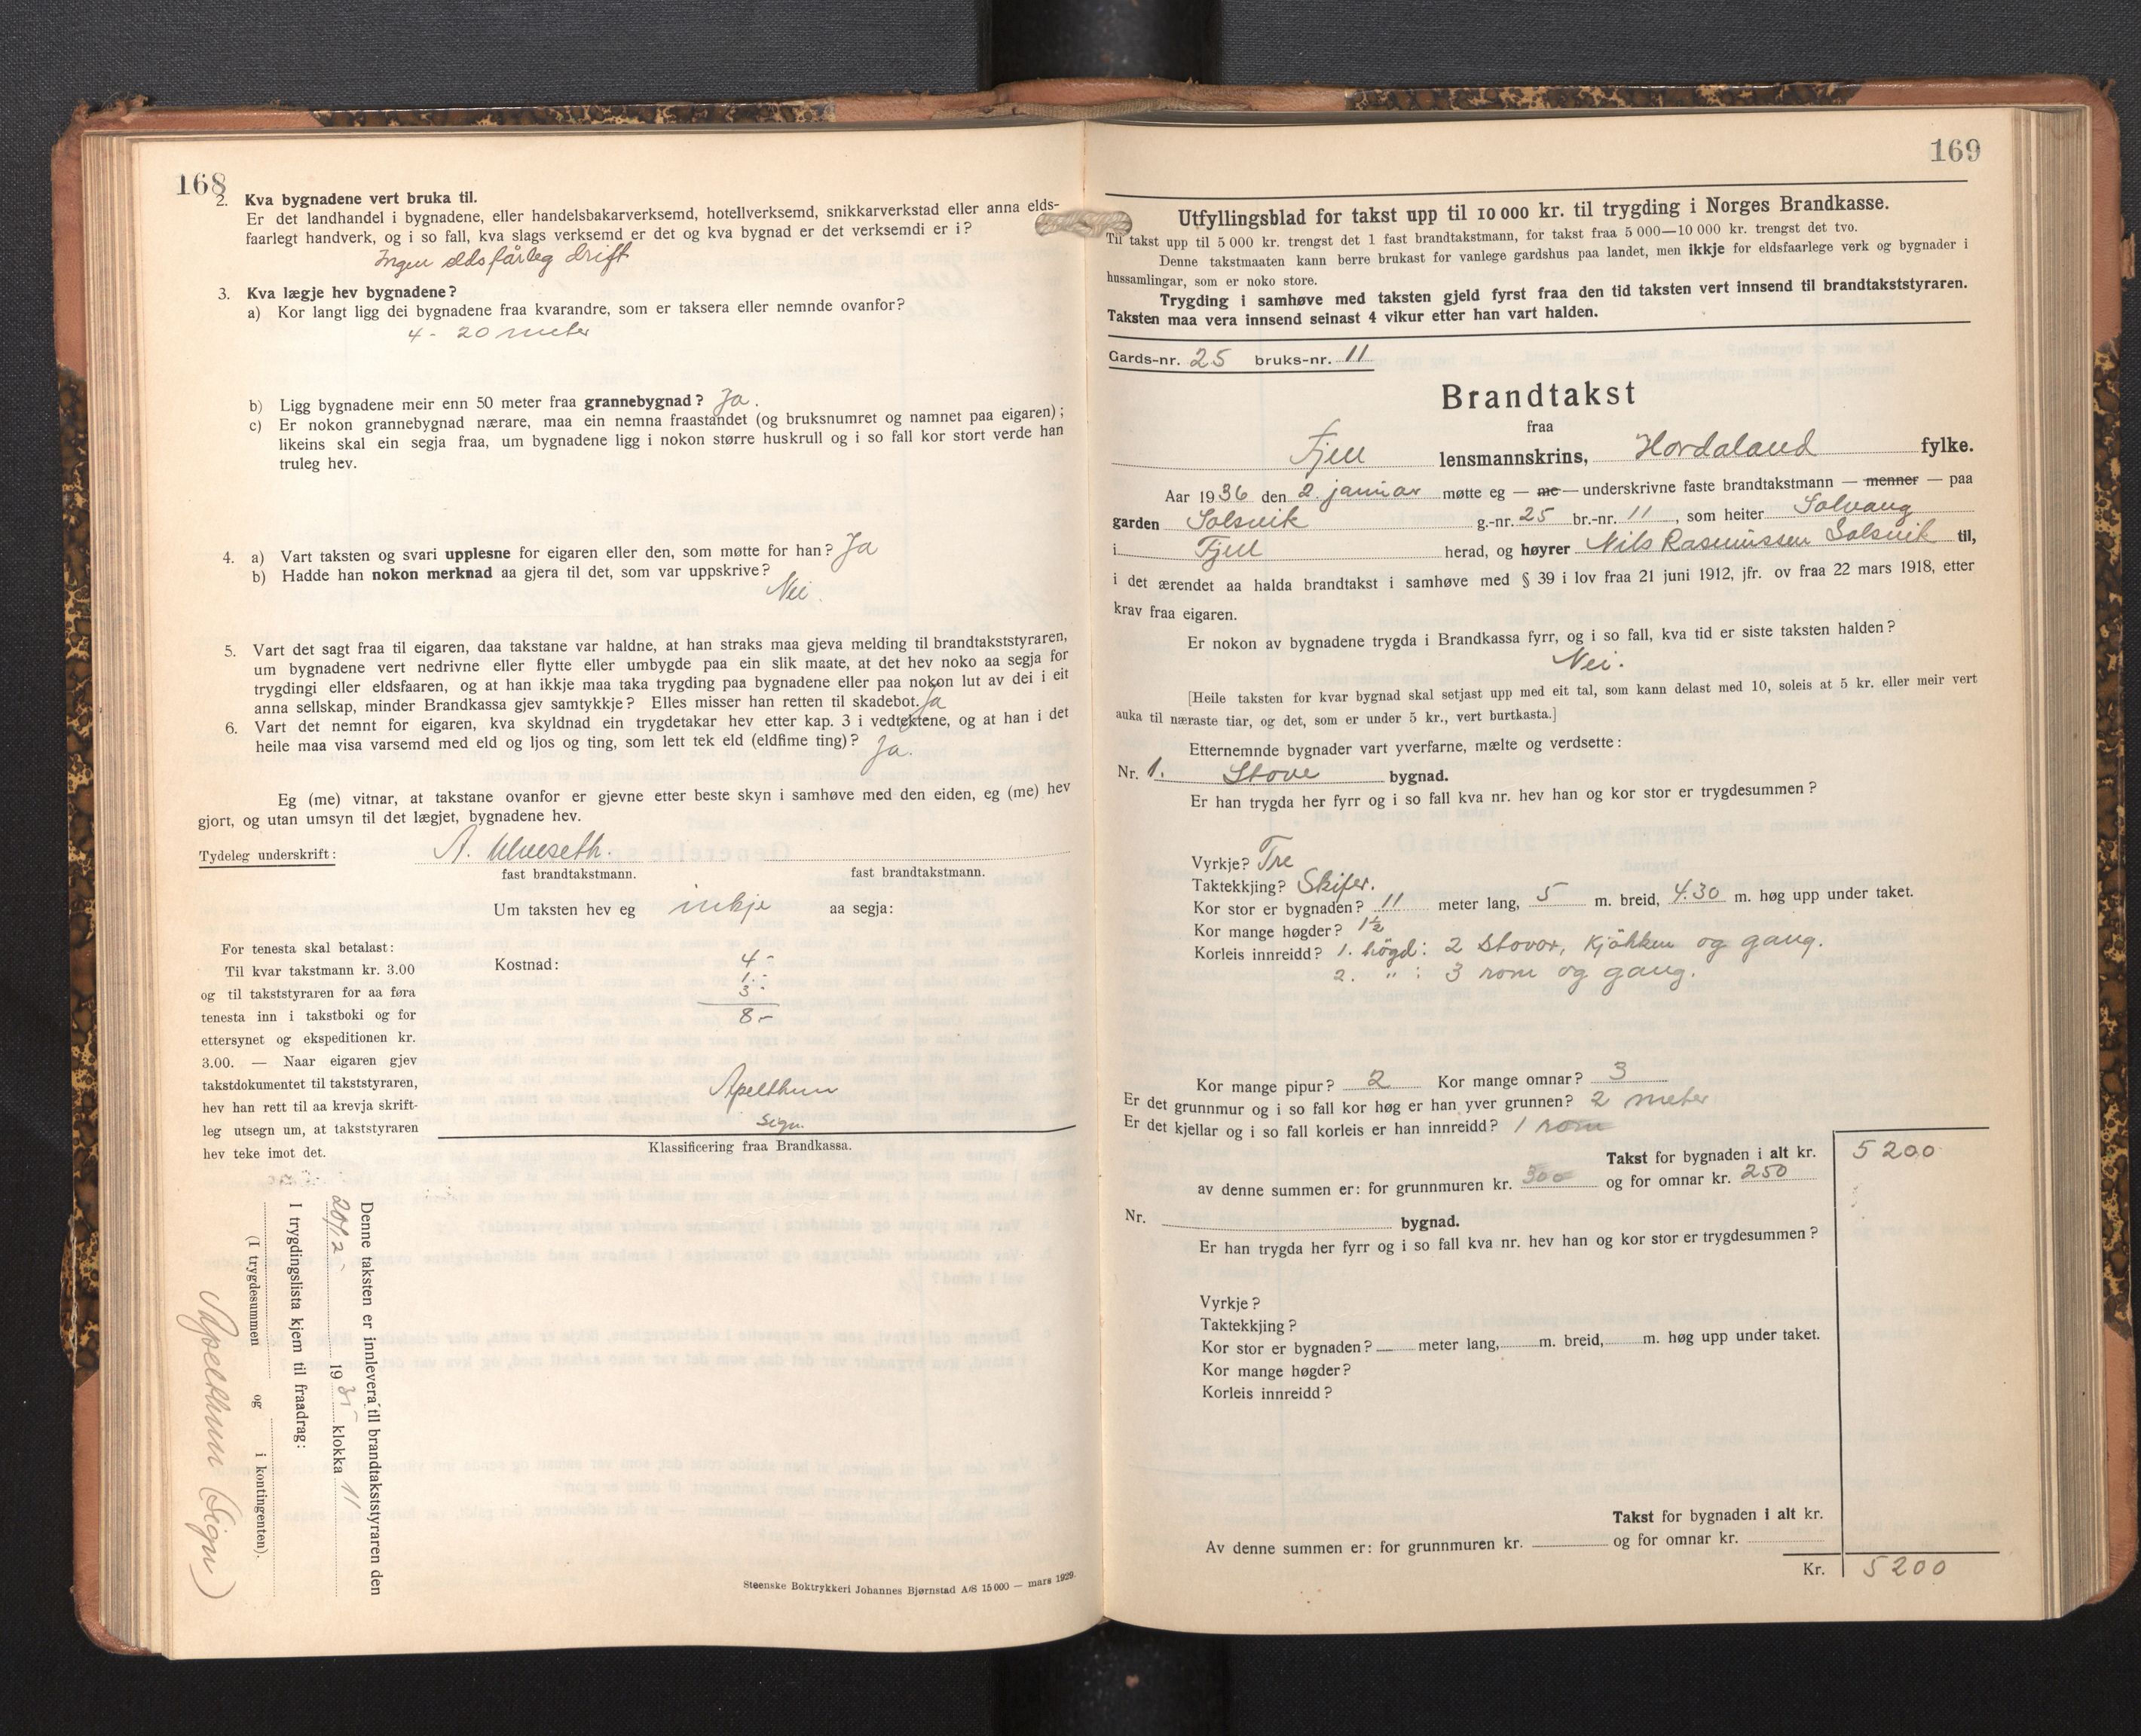 168
2. Kva bygnadene vert bruka til.
Er det landhandel i bygnadene, eller handelsbakarverksemd, hotellverksemd, snikkarverkstad eller anna elds-
faarlegt handverk, og i so fall, kva slags verksemd er det og kva bygnad er det verksemdi er i?
Ingen eldsfårleg drift
3. Kva lægje hev bygnadene?
a) Kor langt ligg dei bygnadene fraa kvarandre, som er taksera eller nemnde ovanfor?
4 - 20 meter
b) Ligg bygnadene meir enn 50 meter fraa grannebygnad? Ja.
c) Er nokon grannebygnad nærare, maa ein nemna fraastandet (og bruksnumret og namnet paa eigaren);
likeins skal ein segja fraa, um bygnadene ligg i nokon større huskrull og i so fall kor stort verde han
truleg hev.
4. a) Vart taksten og svari upplesne for eigaren eller den, som møtte for han? Ja
b) Hadde han nokon merknad aa gjera til det, som var uppskrive?
Nei.
5. Vart det sagt fraa til eigaren, daa takstane var haldne, at han straks maa gjeva melding til brandtakststyraren,
um bygnadene vert nedrivne eller flytte eller umbygde paa ein slik maate, at det hev noko aa segja for
trygdingi eller eldsfaaren, og at han ikkje maa taka trygding paa bygnadene eller paa nokon lut av dei i eit
anna sellskap, minder Brandkassa gjev samtykkje? Elles misser han retten til skadebot. Ja
6. Vart det nemnt for eigaren, kva skyldnad ein trygdetakar hev etter kap. 3 i vedtektene, og at han i det
heile maa visa varsemd med eld og ljos og ting, som lett tek eld (eldfime ting)? Ja.
Eg (me) vitnar, at takstane ovanfor er gjevne etter beste skyn i samhøve med den eiden, eg (me) hev
gjort, og utan umsyn til det lægjet, bygnadene hev.
Tydeleg underskrift: A. Ulveseth.
fast brandtakstmann. fast brandtakstmann.
Um taksten hev eg inkje aa segja:
For tenesta skal betalast:
Til kvar takstmann kr. 3.00
og til takststyraren for aa føra
tenesta inn i takstboki og for
ettersynet og ekspeditionen kr.
3.00. — Naar eigaren gjev
takstdokumentet til takststyraren,
hev han rett til aa krevja skrift-
leg utsegn um, at takststyraren
hev teke imot det.
Kostnad: 4-
1.-
3-
8-
Apelthun
sign.
Klassificering fraa Brandkassa.
Denne taksten er innlevera til brandtakststyraren den
20/12- 1935- klokka 11
I trygdingslista kjem til fraadrag:
(I trygdesummen og i kontingenten).
Apelthun (sign)
Steenske Boktrykkeri Johannes Bjørnstad A/S 15 000 — mars 1929.
169
Utfyllingsblad for takst upp til 10 000 kr. til trygding i Norges Brandkasse.
Til takst upp til 5 000 kr. trengst det 1 fast brandtakstmann, for takst fraa 5 000—10 000 kr. trengst det tvo.
Denne takstmaaten kann berre brukast for vanlege gardshus paa landet, men ikkje for eldsfaarlege verk og bygnader i
hussamlingar, som er noko store.
Trygding i samhøve med taksten gjeld fyrst fraa den tid taksten vert innsend til brandtakststyraren.
Taksten maa vera innsend seinast 4 vikur etter han vart halden.
Gards-nr. 25 bruks-nr. 11
Brandtakst
fraa
Fjell lensmannskrins, Hordaland fylke.
Aar 1936 den 2. januar møtte eg — me — underskrivne faste brandtakstmann — menner — paa
garden Solsvik g.-nr. 25 br.-nr. 11, som heiter Solvang
i Fjell herad, og høyrer Nils Rasmussen Solsvik til,
i det ærendet aa halda brandtakst i samhøve med § 39 i lov fraa 21 juni 1912, jfr. ov fraa 22 mars 1918, etter
krav fraa eigaren.
Er nokon av bygnadene trygda i Brandkassa fyrr, og i so fall, kva tid er siste taksten halden?
Nei.
[Heile taksten for kvar bygnad skal setjast upp med eit tal, som kann delast med 10, soleis at 5 kr. eller meir vert
auka til næraste tiar, og det, som er under 5 kr., vert burtkasta.]
Etternemnde bygnader vart yverfarne, mælte og verdsette:
Nr. 1. Stove bygnad.
Er han trygda her fyrr og i so fall kva nr. hev han og kor stor er trygdesummen?
Vyrkje? Tre
Taktekkjing? Skifer.
Kor stor er bygnaden? 11 meter lang, 5 m. breid, 4.30 m. høg upp under taket.
Kor mange høgder? 1½
Korleis innreidd? 1. högd: 2 stovor, kjökken og gang.
2. " : 3 rom og gang.
Kor mange pipur? 2 Kor mange omnar? 3
Er det grunnmur og i so fall kor høg er han yver grunnen? 2 meter
Er det kjellar og i so fall korleis er han innreidd? 1 rom
Takst for bygnaden i alt kr. 5200
av denne summen er: for grunnmuren kr. 300 og for omnar kr. 250
Nr. bygnad.
Er han trygda her fyrr og i so fall kva nr. hev han og kor stor er trygdesummen?
Vyrkje?
Taktekkjing?
Kor stor er bygnaden? meter lang, m. breid, m. høg upp under taket.
Kor mange høgder?
Korleis innreidd?
Takst for bygnaden i alt kr.
Av denne summen er: for grunnmuren kr. og for omnar kr.
Kr. 5200